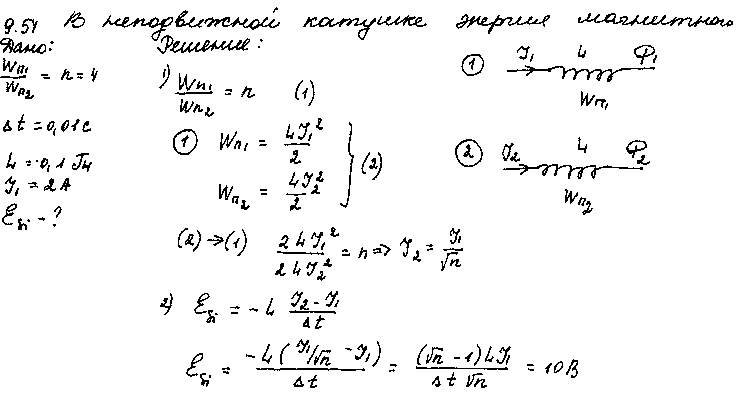 9.54 В неподвижной катушке энергия магнитного
Дано:
Wп1/Wп2 = n = 4
Δt = 0,01 с
L = 0,1 Гн
I₁ = 2 А
ℰsi - ?
Решение:
1) Wп1/Wп2 = n (1)
① Wп1 = LI₁²/2
Wп2 = LI₂²/2 } (2)
(2) → (1) 2LI₁²/2LI₂² = n => I₂ = I₁/√n
2) ℰsi = -L (I₂ - I₁)/Δt
ℰsi = -L(I₁/√n - I₁)/Δt = (√n - 1)LI₁/Δt√n = 10 В
① I₁ L Ф₁
Wп1
② I₂ L Ф₂
Wп2